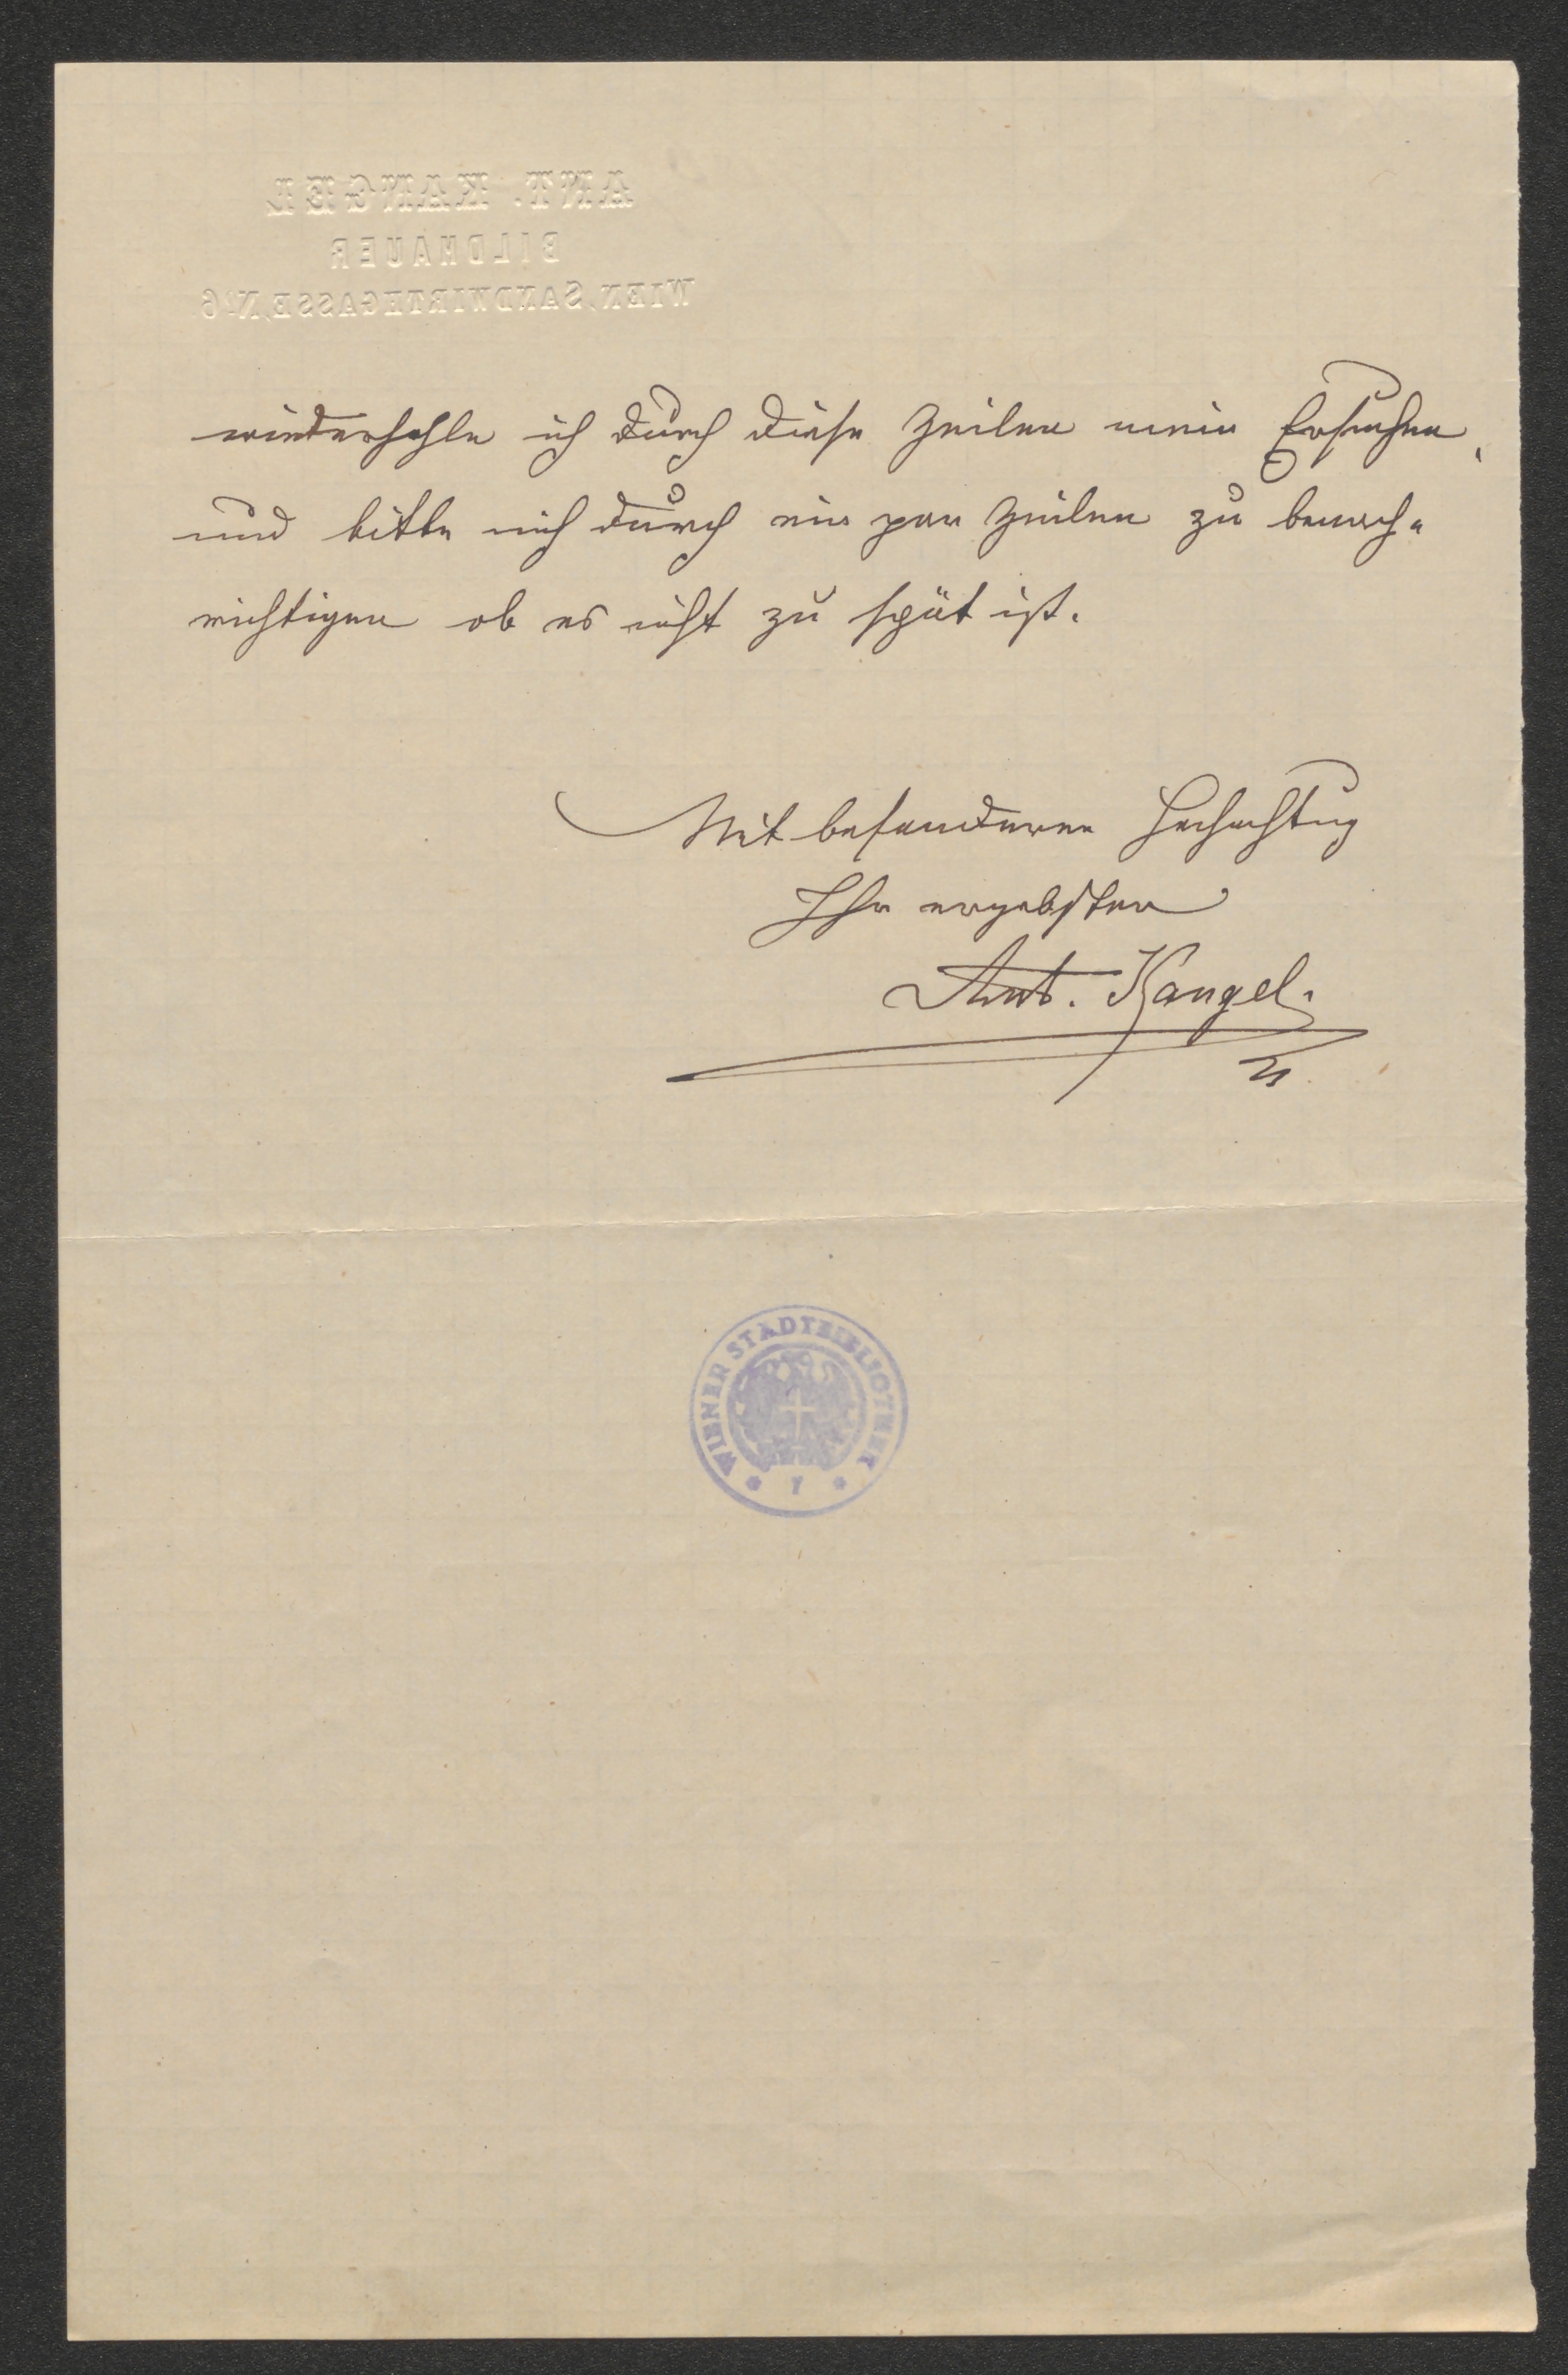 ANT. KANGEL
BILDHAUER
WIEN, SANDWIRTHGASSE, No 6
wiederhohle ich durch diese Zeilen mein Ersuchen,
und bitte mich durch ein par Zeilen zu benach=
richtigen ob es nicht zu spät ist.
Mit besonderer Hochachtug
Ihr ergebster
Ant. Kangel.
WIENER STADTBIBLIOTHEK